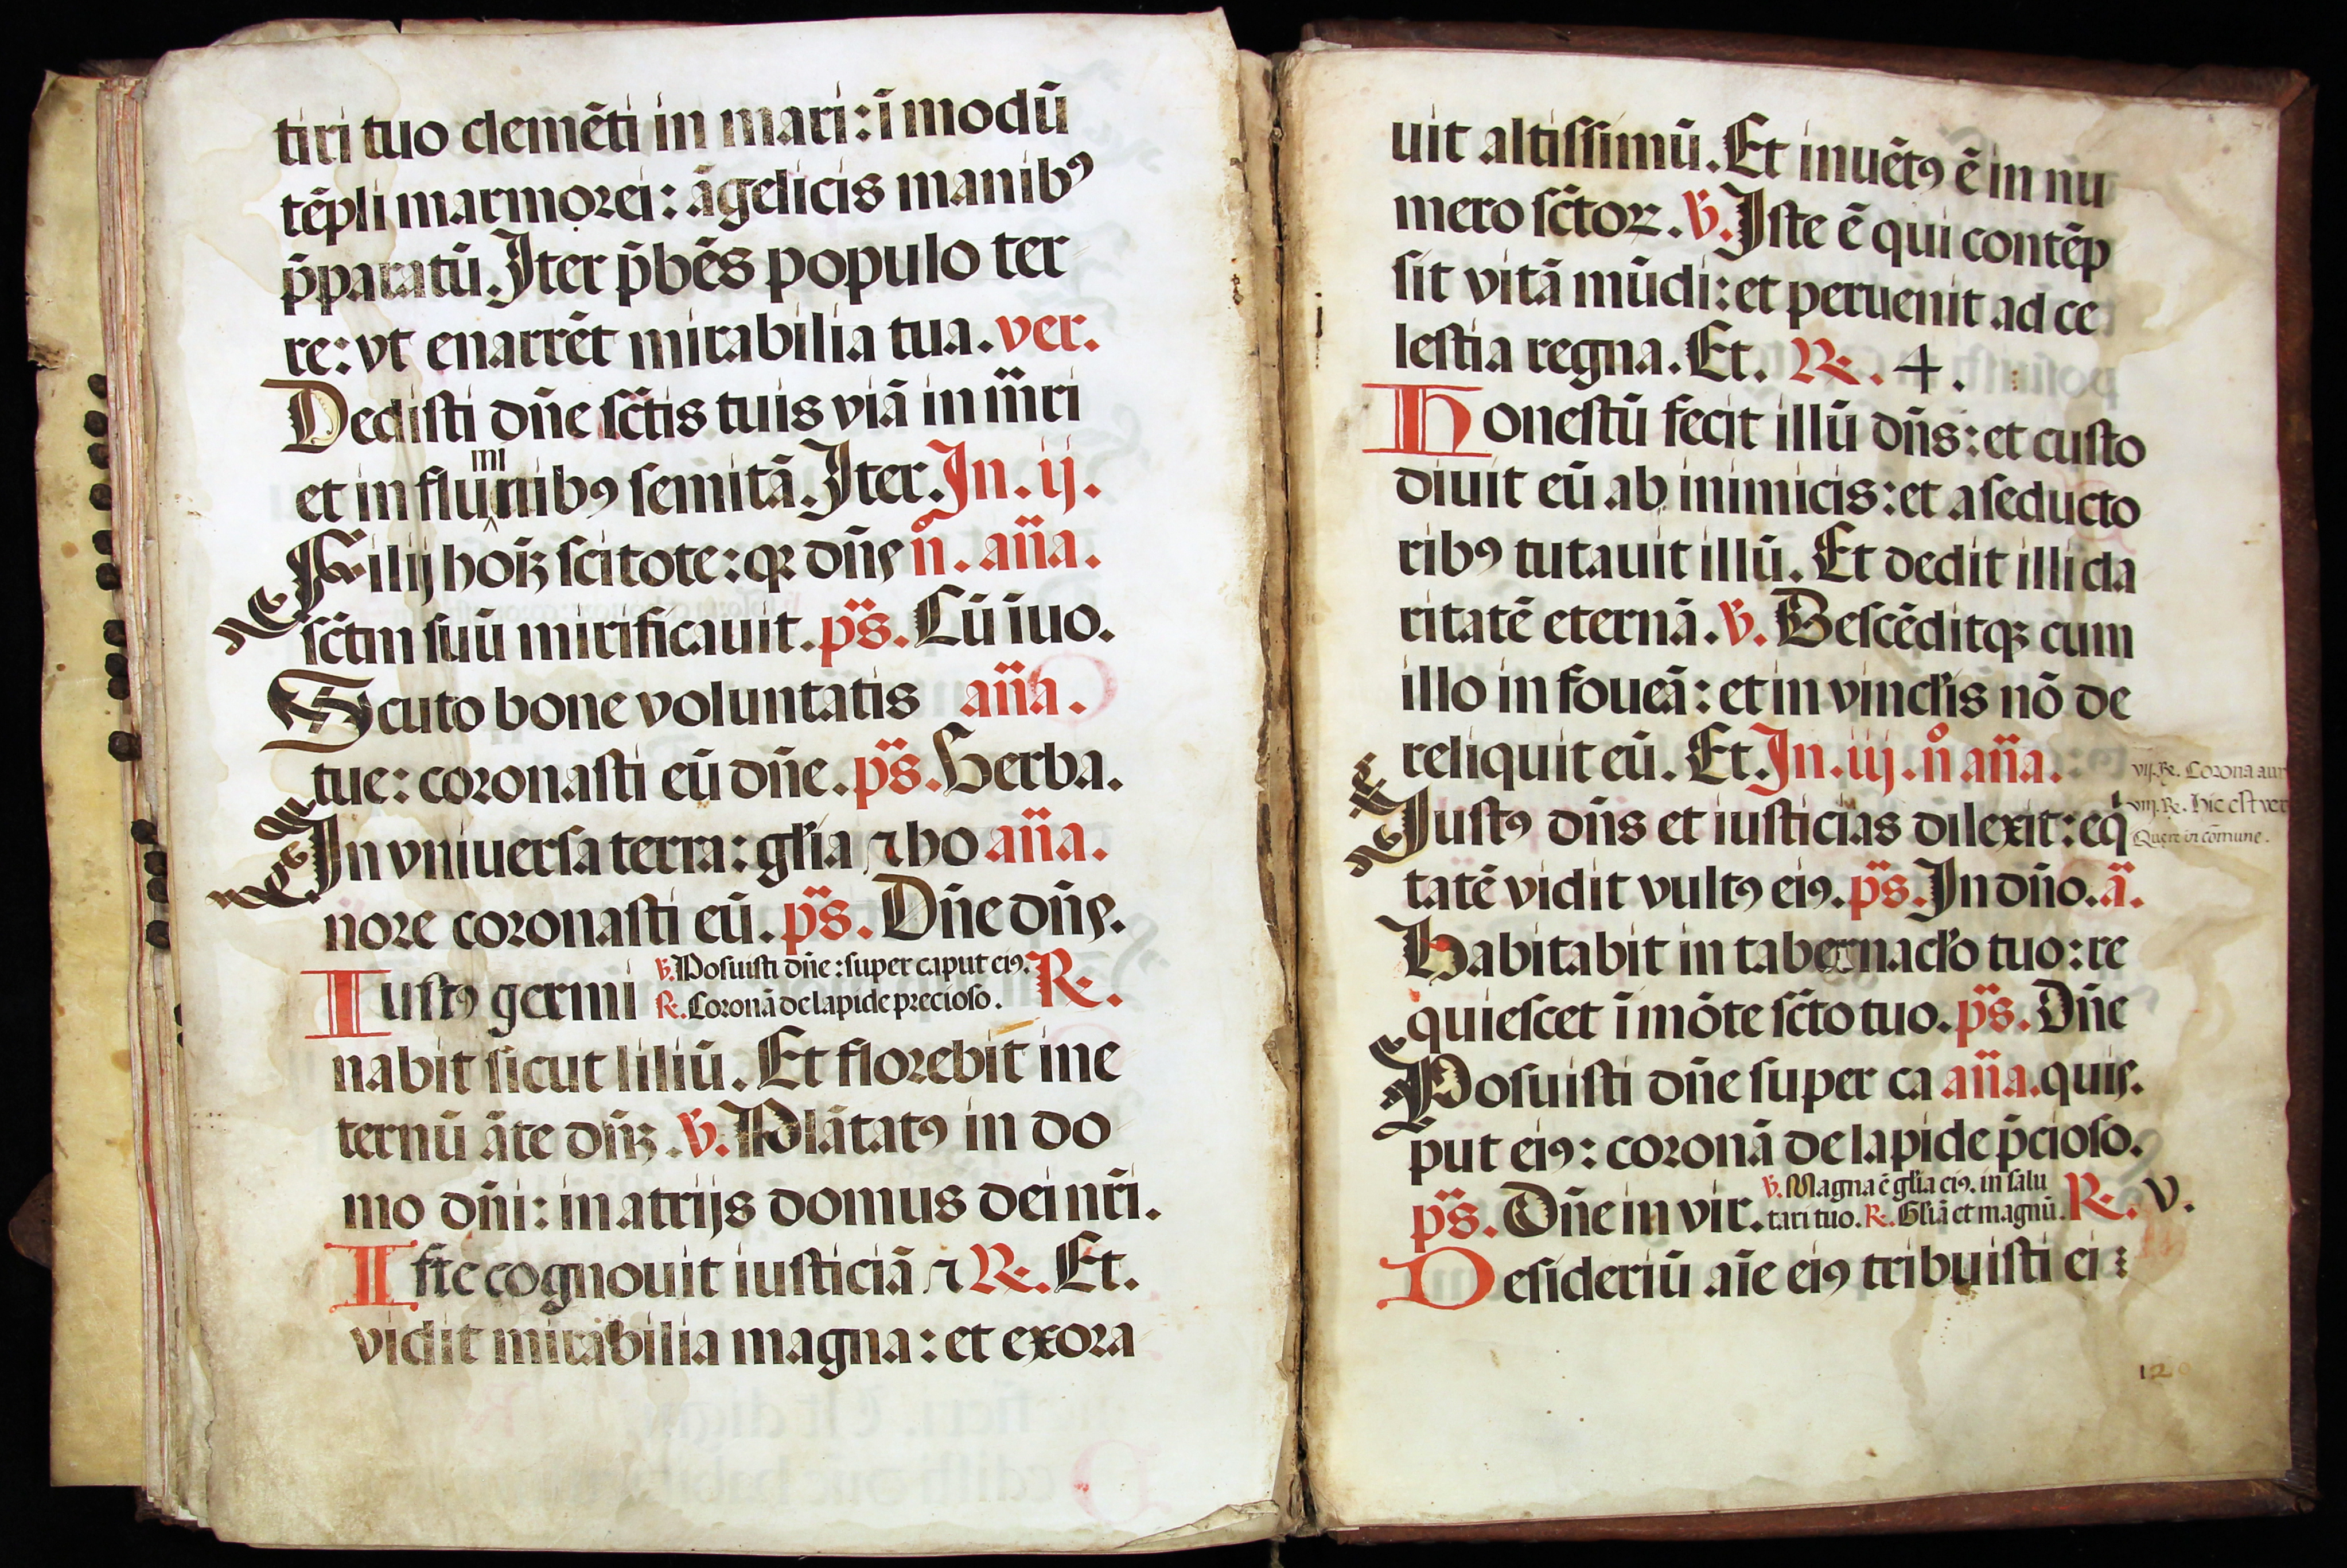 tiri tuo clemēti in mari: ī modū
tēpli marmorei: āgelicis manibꝰ
p̄paratū. Iter p̄bēs populo ter
re: vt enarrēt mirabilia tua. ver.
Dedisti dn̄e sc̄tis tuis viā in m̄ri
mi
et in flunibꝰ semitā. Iter. In. ij.
Filij hoīꝫ scitote: qꝛ dn̄s n̊. an̄a.
sc̄tm suū mirificauit. ps̄. Cū īuo.
Scuto bone voluntatis an̄a.
tue: coronasti eū dn̄e. ps̄. Uerba.
In vniuersa terra: glīa ⁊ ho an̄a.
nore coronasti eū. ps̄. Dn̄e dn̄s.
℣. Posuisti dn̄e: super caput eiꝰ.
Iustꝰ germi ℟. Coronā de lapide precioso. ℟.
nabit sicut liliū. Et florebit in e
ternū āte dn̄ꝫ. ℣. Plātatꝰ in do
mo dn̄i: in atrijs domus dei nr̄i.
Iste cognouit iusticiā ⁊ ℟. Et.
vidit mirabilia magna: et exora
uit altissimū. Et inuētꝰ ē in nu
mero sc̄toꝝ. ℣. Iste ē qui contēp
sit vitā mūdi: et peruenit ad ce
lestia regna. Et. ℟. 4.
Honestū fecit illū dn̄s: et custo
diuit eū ab inimicis: et a seducto
ribꝰ tutauit illū. Et dedit illi cla
ritatē eternā. ℣. Descēditqꝫ cum
illo in foueā: et in vincl̄is nō de
reliquit eū. Et. In. iij. n̊ an̄a.
vij. ℟. Corona aur
Iustꝰ dn̄s et iusticias dilexit: eq̇
viij. ℟. Hic est ver
Quere in cōmune.
tatē vidit vultꝰ eiꝰ. ps̄. In dn̄o. ā.
Habitabit in tabernacl̄o tuo: re
quiescet ī mōte sc̄to tuo. ps̄. Dn̄e
Posuisti dn̄e super ca an̄a. quis.
put eiꝰ: coronā de lapide p̄cioso.
℣. Magna ē glīa eiꝰ. in salu
ps̄. Dn̄e in vir. tari tuo. ℟. Glīā et magnū. ℟. v.
Desideriū aīe eiꝰ tribuisti ei:
120